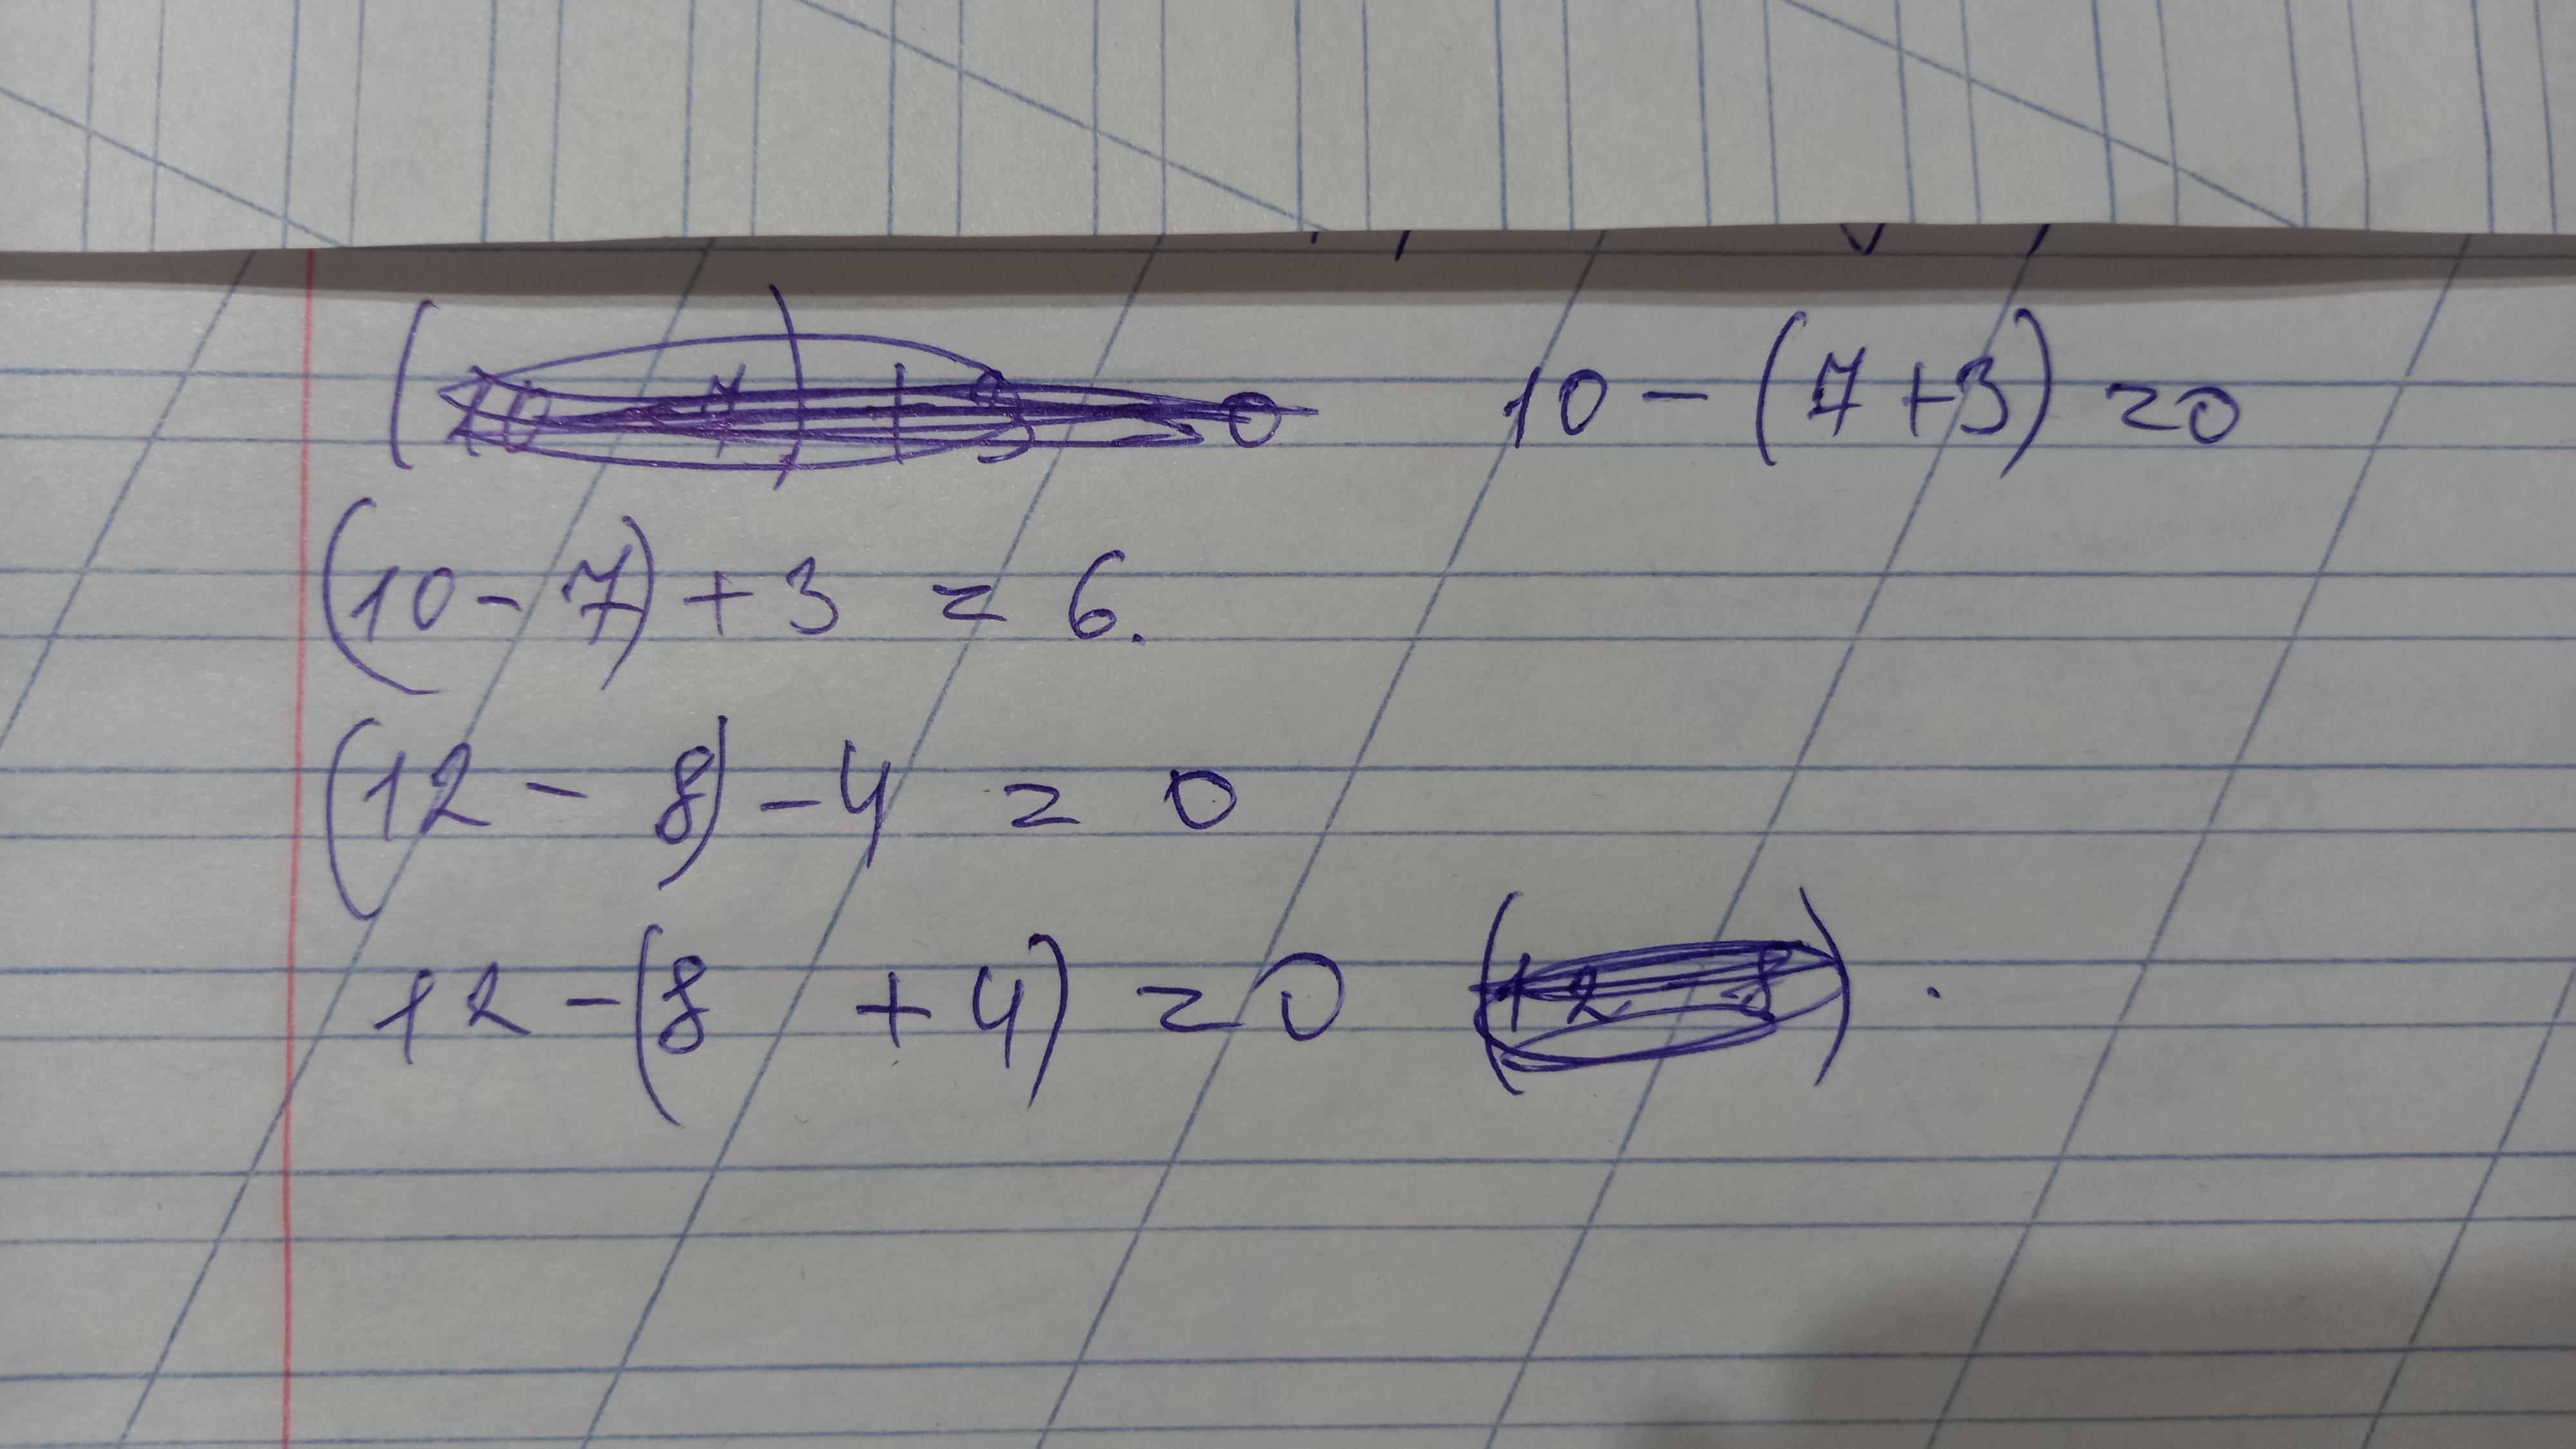 10 - (7 + 3) = 0
(10 - 7) + 3 = 6.
(12 - 8) - 4 = 0
12 - (8 + 4) = 0